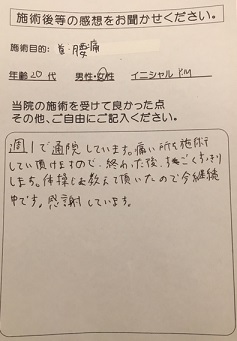 施術後等の感想をお聞かせください。
施術目的: 首・腰痛
年齢20代 男性・女性 イニシャル KM
当院の施術を受けて良かった点
その他、ご自由にご記入ください。
週1で通院しています。痛い所を施術
して頂けますので、終わった後、すごくすっきり
します。体操も教えて頂いたので今継続
中です。感謝しています。